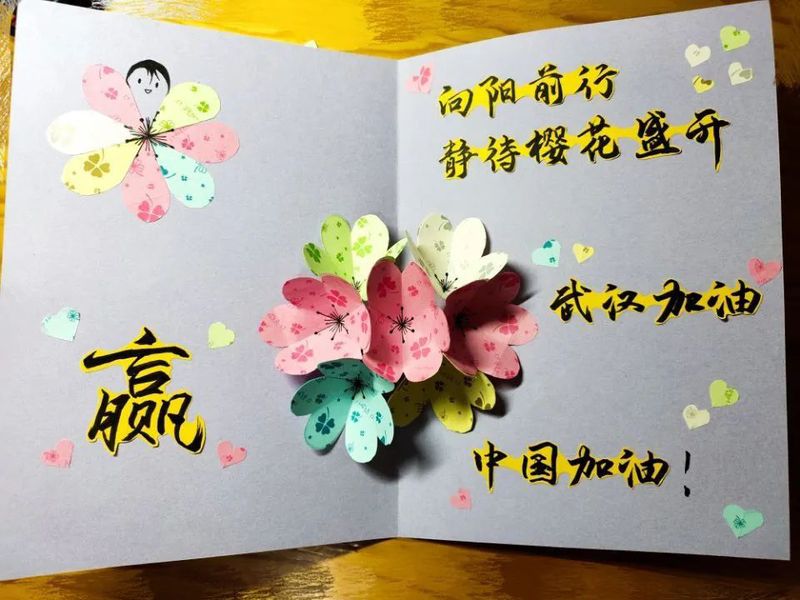 赢
向阳前行
静待樱花盛开
武汉加油
中国加油！